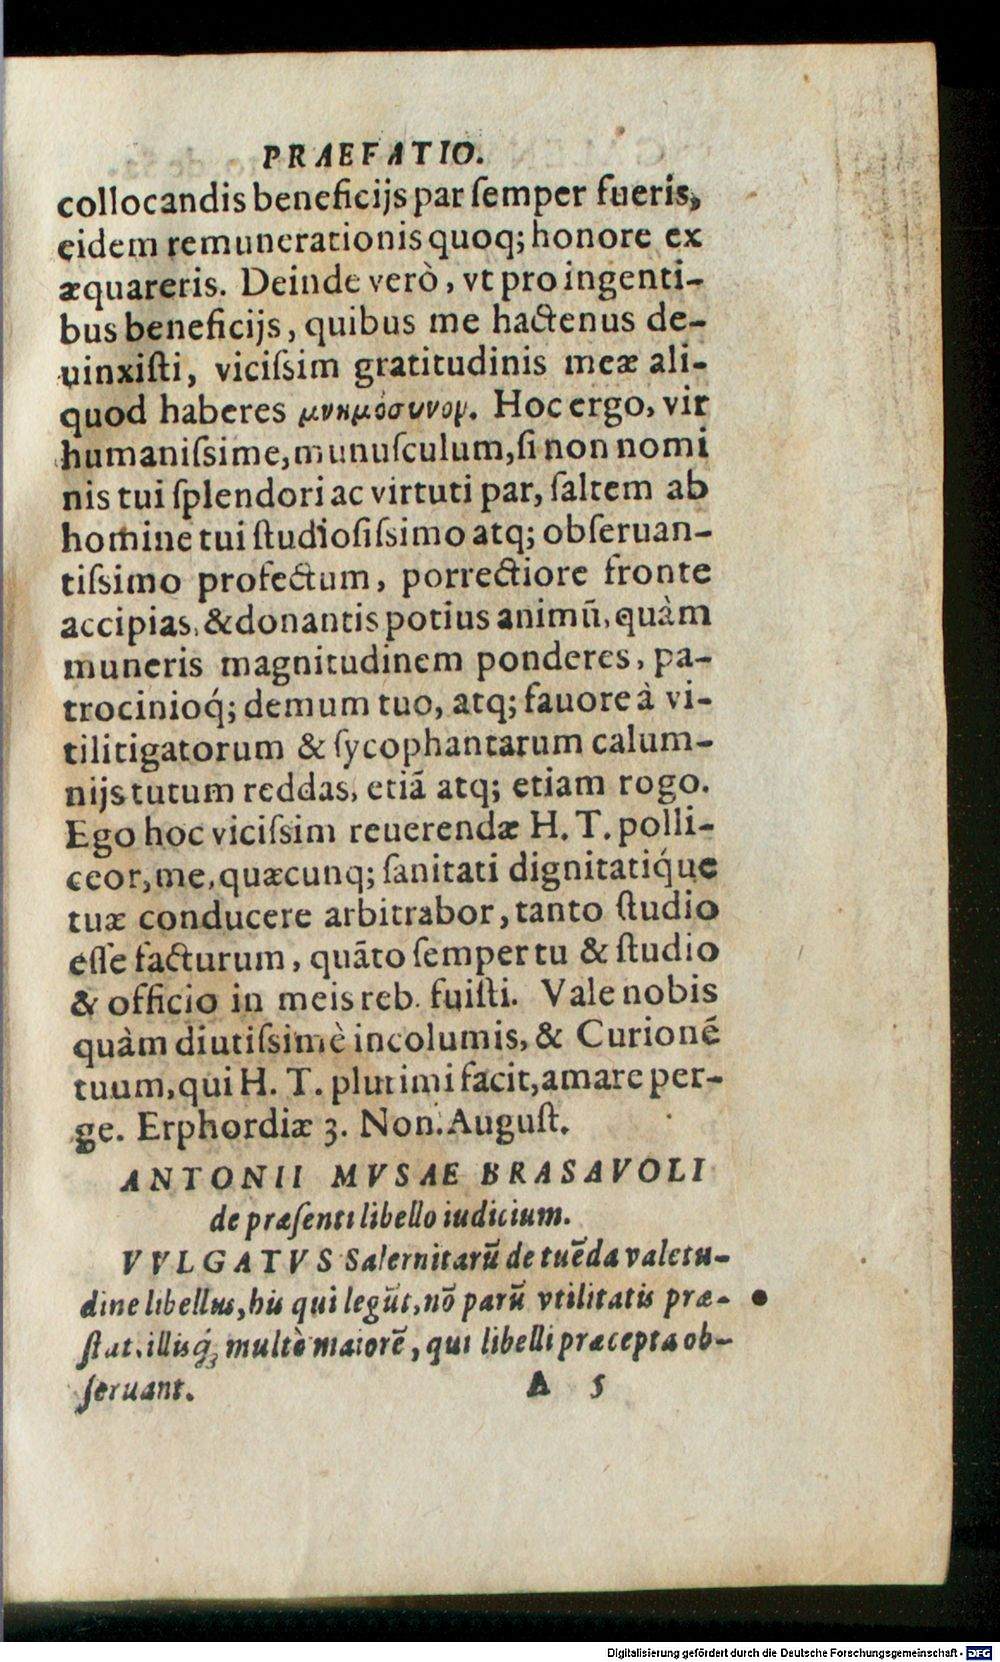 PRAEFATIO.
collocandis beneficijs par semper fueris,
eidem remunerationis quoq; honore ex
æquareris. Deinde verò, vt pro ingenti-
bus beneficijs, quibus me hactenus de-
uinxiſti, viciſsim gratitudinis meæ ali-
quod haberes μνημόσυνον. Hoc ergo, vir
humaniſsime, munuſculum, ſi non nomi
nis tui ſplendori ac virtuti par, ſaltem ab
homine tui ſtudioſiſsimo atq; obſeruan-
tiſsimo profectum, porrectiore fronte
accipias, & donantis potius animũ, quàm
muneris magnitudinem ponderes, pa-
trocinioq́; demum tuo, atq; fauore à vi-
tilitigatorum & ſycophantarum calum-
nijs tutum reddas, etiã atq; etiam rogo.
Ego hoc viciſsim reuerendæ H. T. polli-
ceor, me, quæcunq; ſanitati dignitatiq́ue
tuæ conducere arbitrabor, tanto ſtudio
eſſe facturum, quãto ſemper tu & ſtudio
& officio in meis reb. fuiſti. Vale nobis
quàm diutiſsimè incolumis, & Curionẽ
tuum, qui H. T. plurimi facit, amare per-
ge. Erphordiæ 3. Non. Auguſt.
ANTONII MVSAE BRASAVOLI
de præſenti libello iudicium.
VVLGATVS Salernitarũ de tuẽda valetu-
dine libellus, his qui legũt, nõ parũ vtilitatis præ-
ſtat, illisq́ꝫ multò maiorẽ, qui libelli præcepta ob-
ſeruant.
A 5
Digitalisierung gefördert durch die Deutsche Forschungsgemeinschaft - DFG